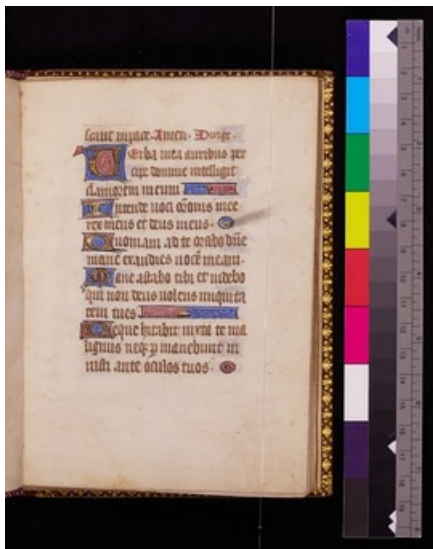 scant in pace. Amen. Dirige.
Verba mea auribus per
cipe domine intellige
clamorem meum
Intende uoci orõnis mee
rex meus et deus meus.
Quoniam ad te orabo dñe
mane exaudies uocẽ meam.
Mane astabo tibi et uidebo
qm̃ non deus uolens iniquita
tem tu es
Neque hitabit iuxta te ma
lignus neqz p̱manebunt in
iusti ante oculos tuos.